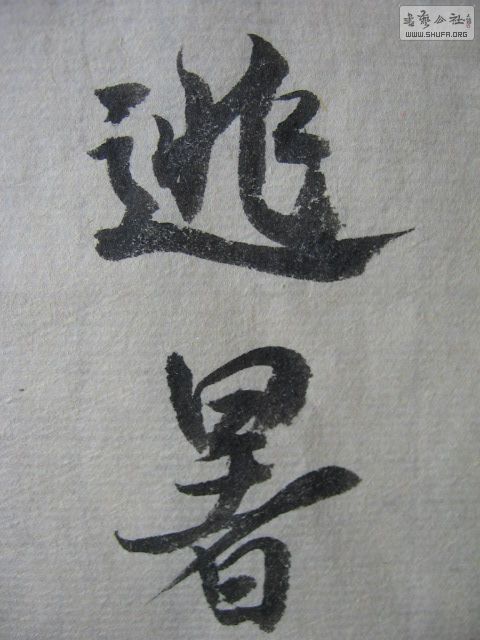 逃暑
書藝公社
WWW.SHUFA.ORG